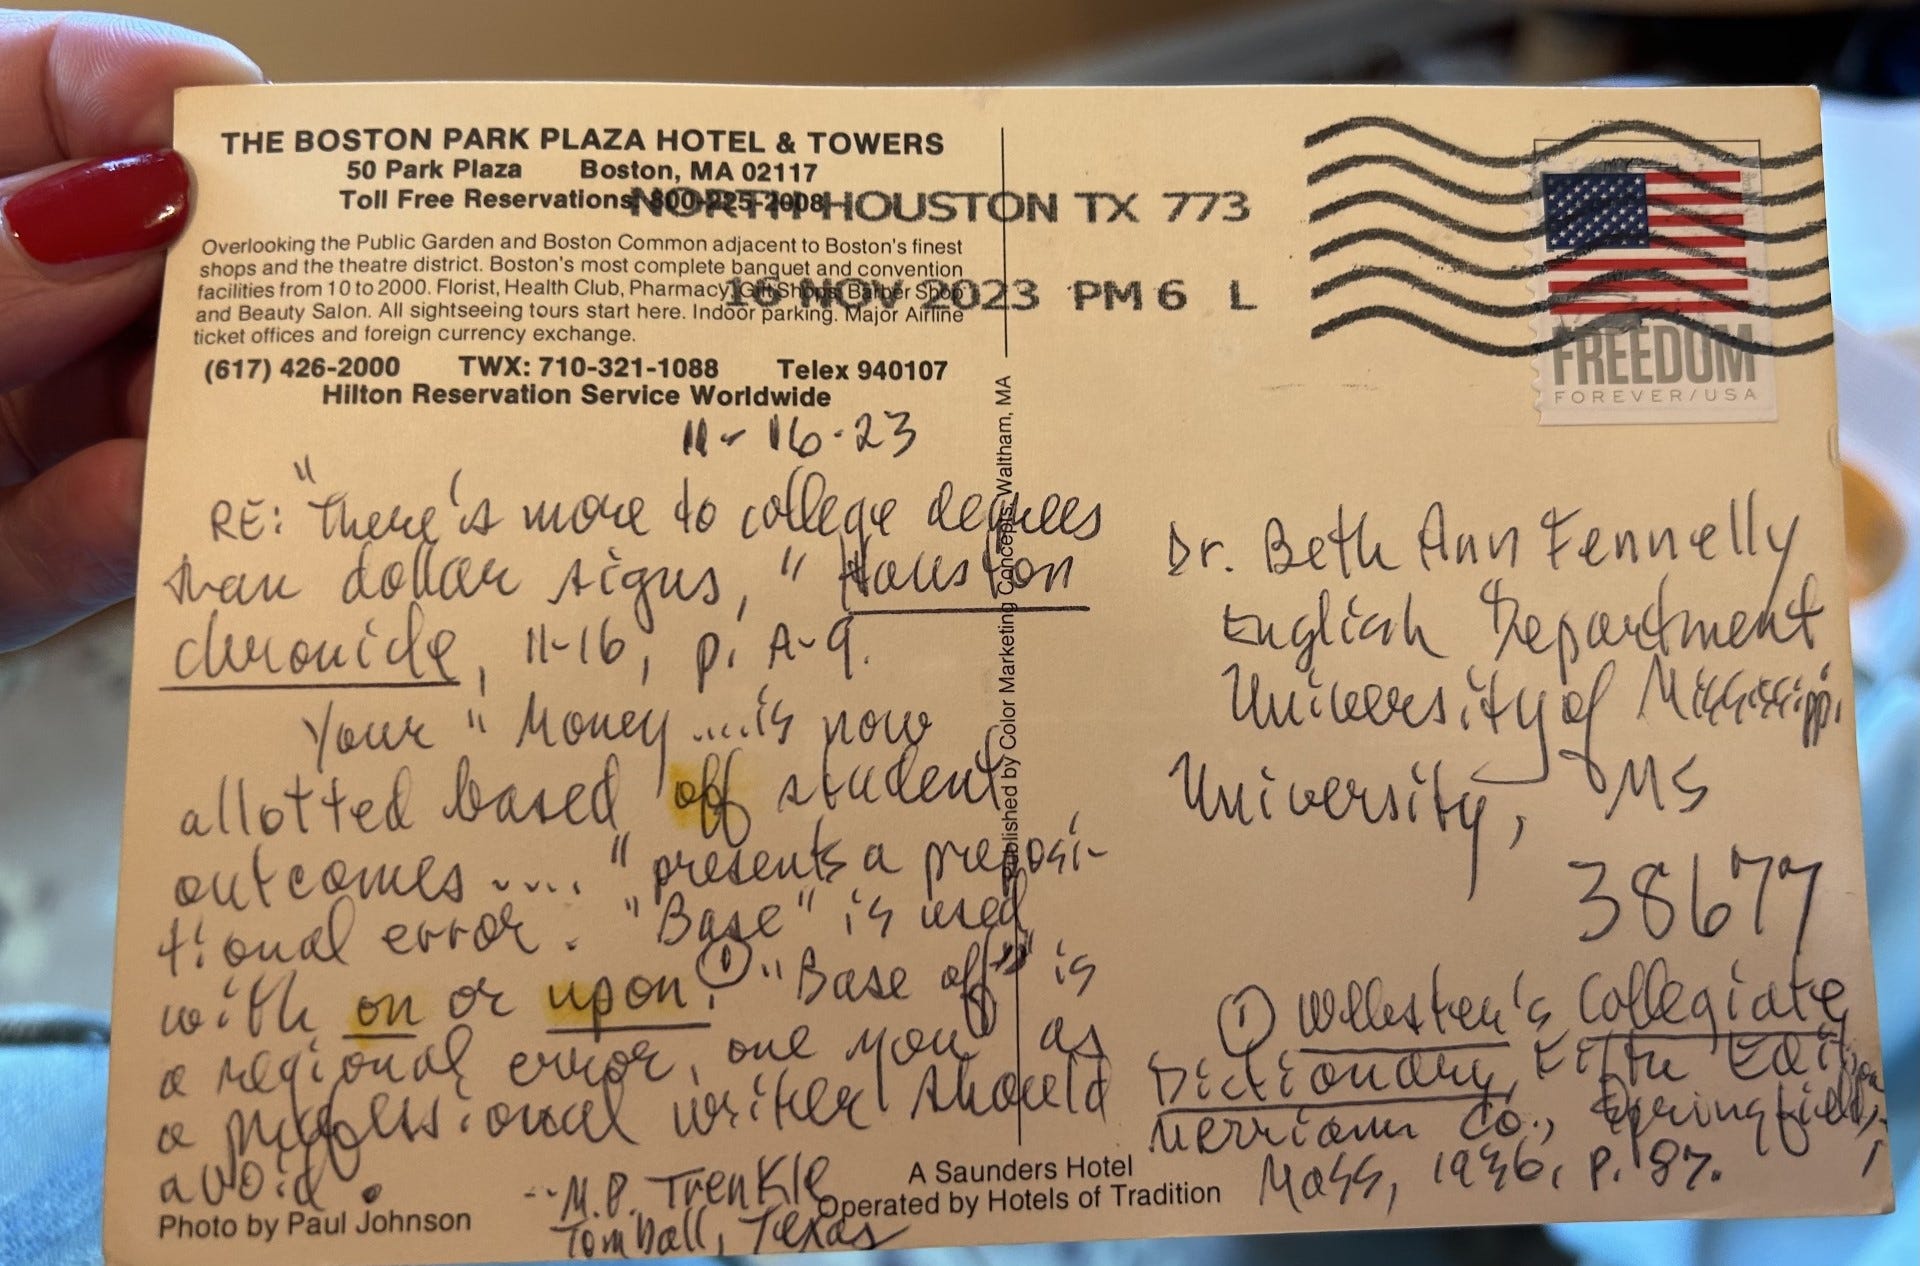 THE BOSTON PARK PLAZA HOTEL & TOWERS
50 Park Plaza Boston, MA 02117
Toll Free Reservations 800-225-2008
Overlooking the Public Garden and Boston Common adjacent to Boston's finest
shops and the theatre district. Boston's most complete banquet and convention
facilities from 10 to 2000. Florist, Health Club, Pharmacy, Gift Shops, Barber Shop
and Beauty Salon. All sightseeing tours start here. Indoor parking. Major Airline
ticket offices and foreign currency exchange.
(617) 426-2000 TWX: 710-321-1088 Telex 940107
Hilton Reservation Service Worldwide
NORTH HOUSTON TX 773
16 NOV 2023 PM 6 L
FREEDOM
FOREVER/USA
11-16-23
RE: "There's more to college degrees
than dollar signs," Houston
Chronicle, 11-16, p. A-9.
Your "Money....is now
allotted based off student
outcomes...." presents a preposi-
tional error. "Base" is used
with on or upon.① "Base off" is
a regional error, one you as
a professional writer should
avoid.
--M.P. Trenkle
Tomball, Texas
Photo by Paul Johnson
A Saunders Hotel
Operated by Hotels of Tradition
Published by Color Marketing Concepts, Waltham, MA
Dr. Beth Ann Fennelly
English Department
University of Mississippi
University, MS
38677
① Webster's Collegiate
Dictionary, Fifth Edition,
Merriam Co., Springfield,
Mass, 1936, p. 87.